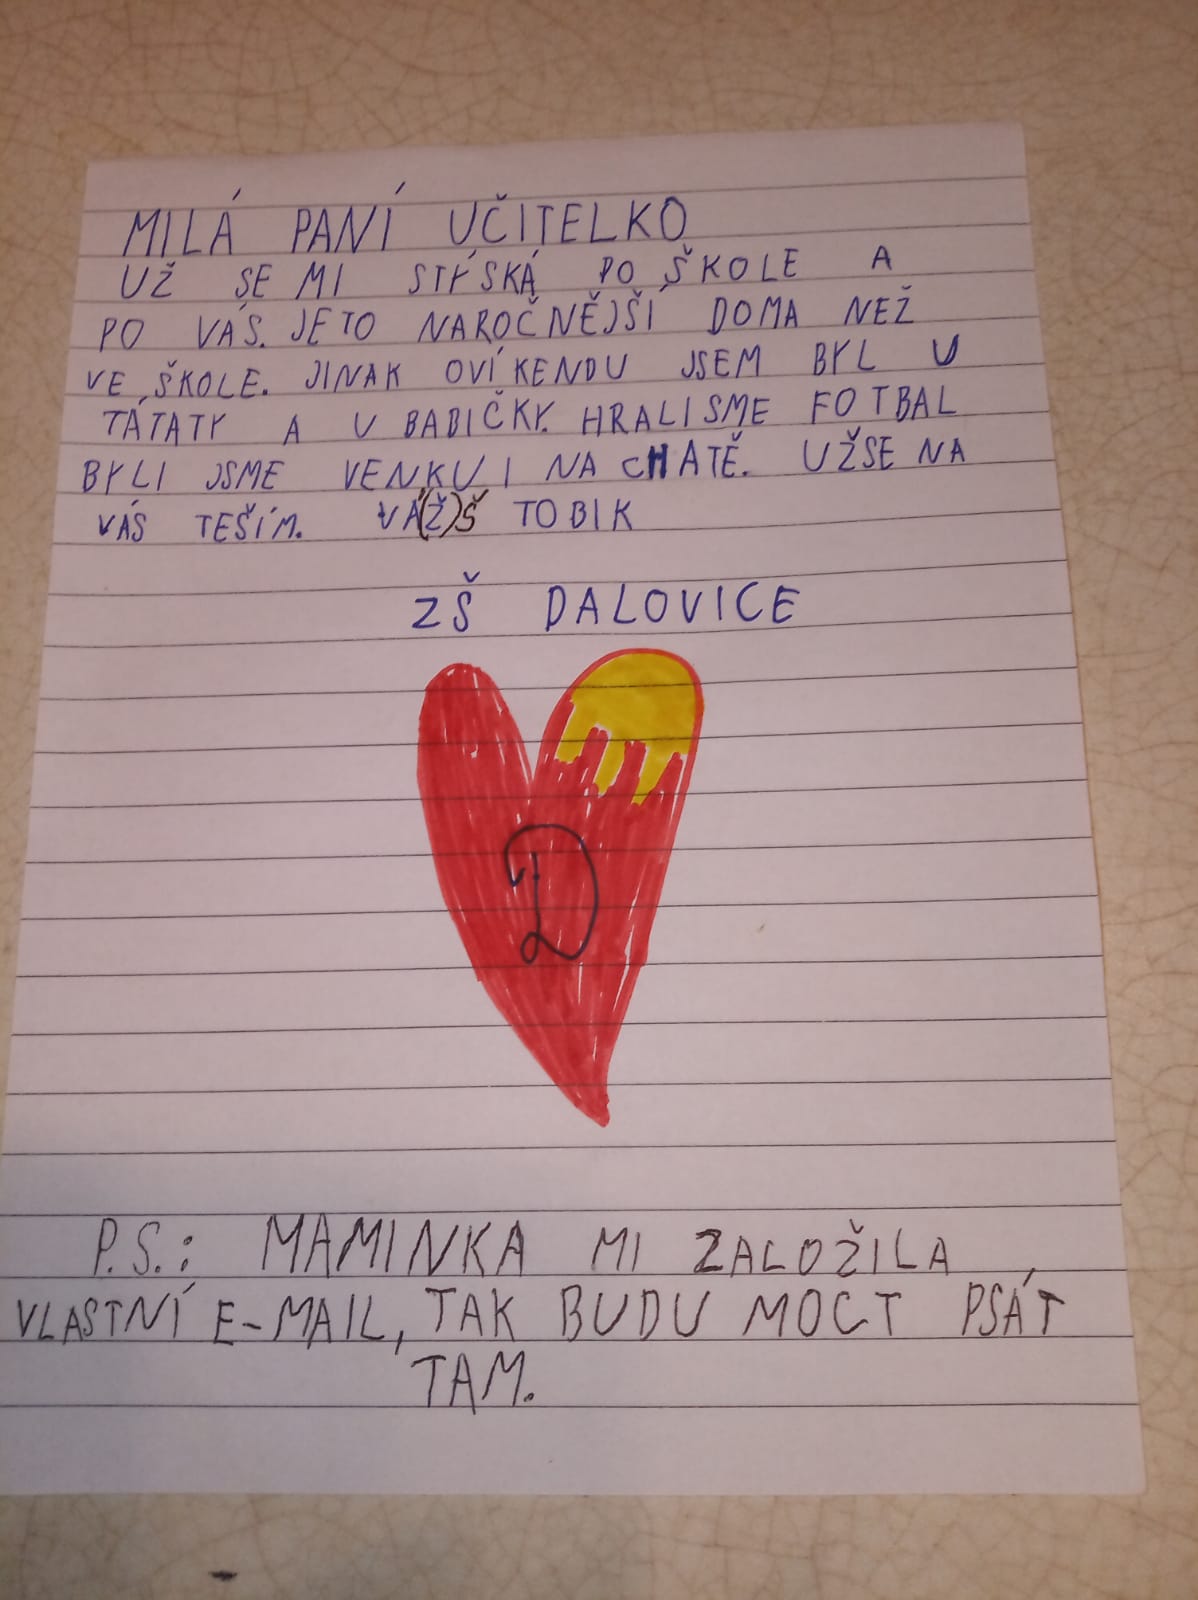 MILÁ PANÍ UČITELKO
UŽ SE MI STÝSKÁ PO ŠKOLE A
PO VÁS. JETO NAROČNĚJŠÍ DOMA NEŽ
VE ŠKOLE. JINAK OVÍKENDU JSEM BYL U
TÁTATY A U BABIČKY. HRALISME FOTBAL
BYLI JSME VENKU I NA CHATĚ. UŽSE NA
VÁS TEŠÍM. VÁ(Ž)Š TOBIK
ZŠ DALOVICE
D
P.S.: MAMINKA MI ZALOŽILA
VLASTNÍ E-MAIL, TAK BUDU MOCT PSÁT
TAM.